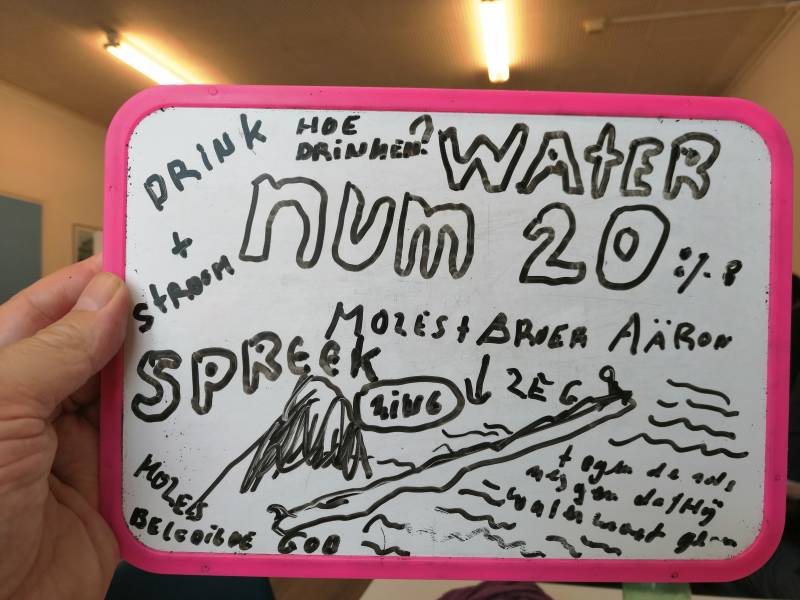 DRINK
HOE
DRINKEN?
WATER
+
STROOM
NUM 20
MOZES + BROER AÄRON
SPREEK
ZEG
tegen de rots
zeggen dat Hij
water moet geven
MOZES
BELEDIGDE GOD